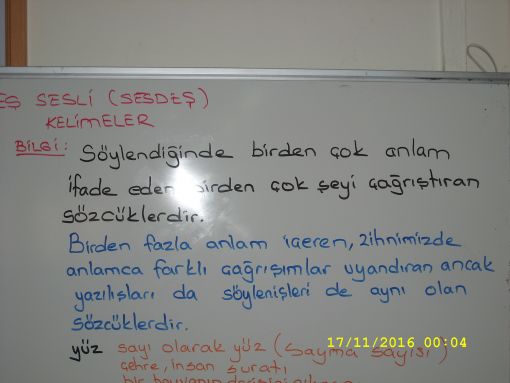 EŞ SESLİ (SESDEŞ)
KELİMELER
BİLGİ: Söylendiğinde birden çok anlam
ifade eden birden çok şeyi çağrıştıran
sözcüklerdir.
Birden fazla anlam içeren, zihnimizde
anlamca farklı çağrışımlar uyandıran ancak
yazılışları da söylenişleri de aynı olan
sözcüklerdir.
yüz sayı olarak yüz (Sayma sayısı)
17/11/2016 00:04
çehre, insan suratı
bir hayvanın derisini